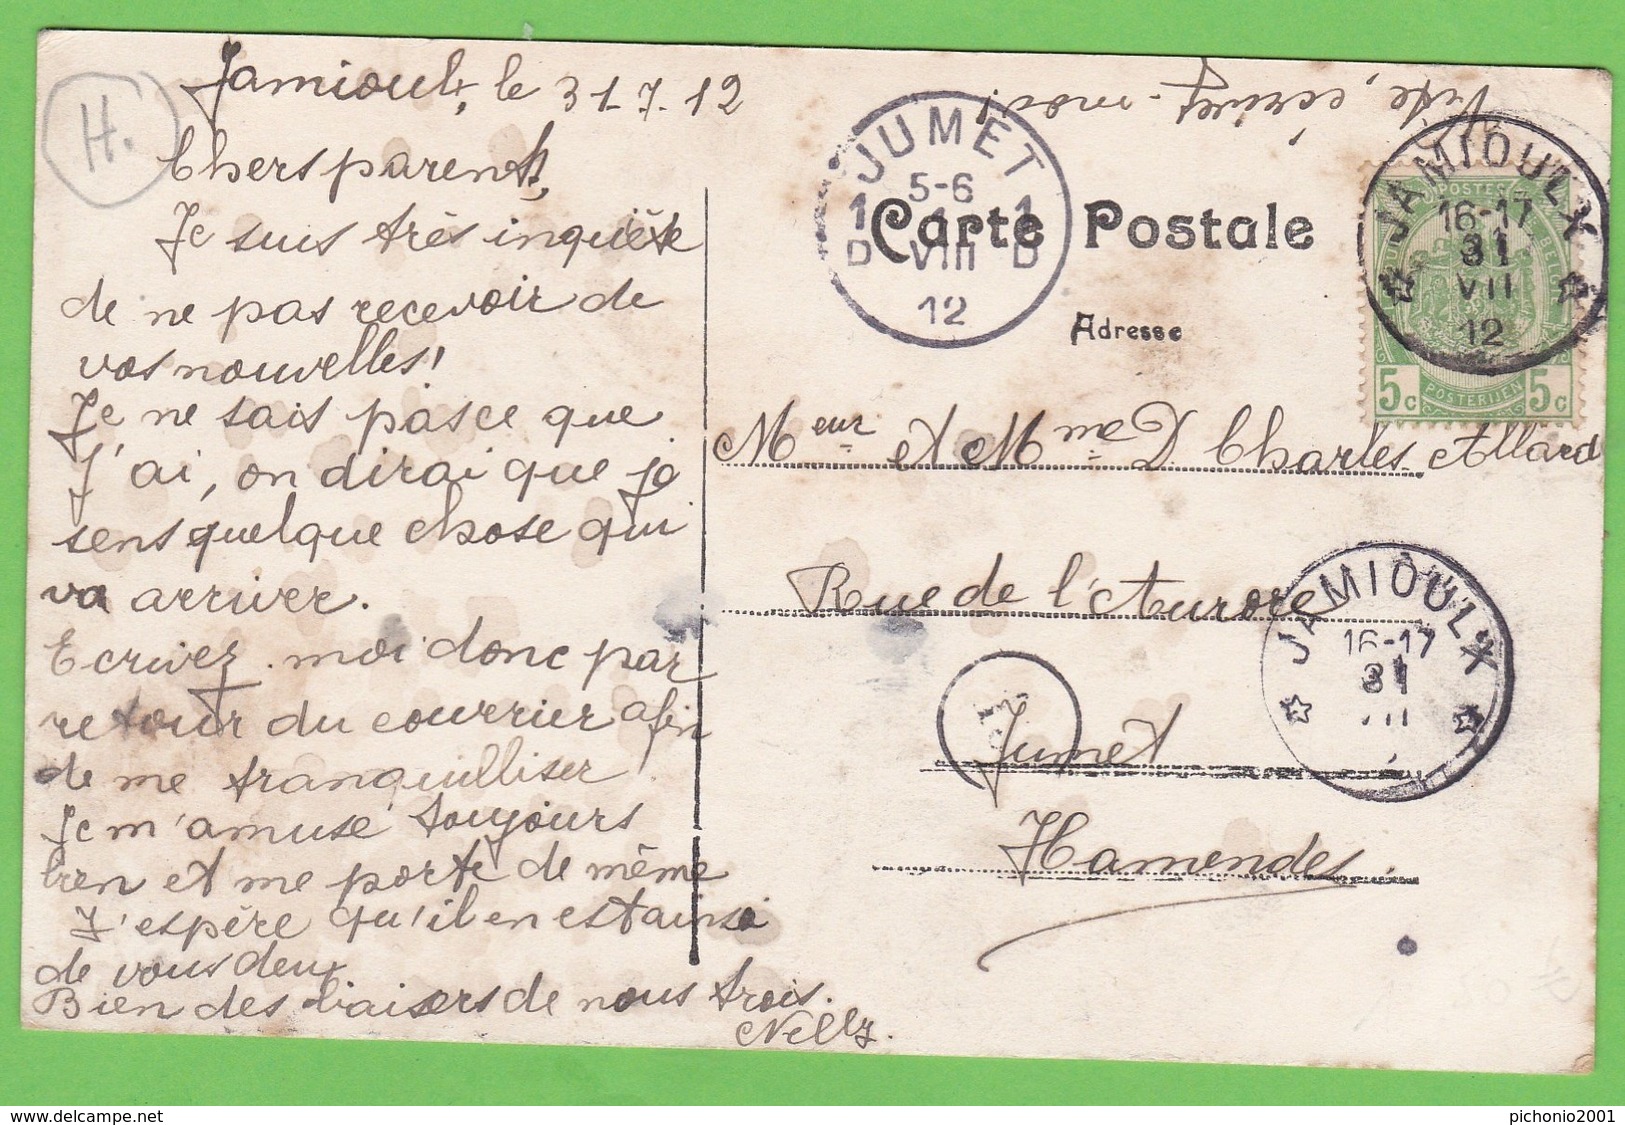 H.
Jamioulx, le 31-7-12
Chers parents,
Je suis très inquiète
de ne pas recevoir de
vos nouvelles!
Je ne sais pas ce que
j'ai, on dirai que je
sens quelque chose qui
va arriver.
Ecrivez-moi donc par
retour du courrier afin
de me tranquilliser.
Je m'amuse toujours
bien et me porte de même
J'espère qu'il en est ainsi
de vous deux
Bien des baisers de nous trois.
Nelly.
Vite, écrivez-moi!
JUMET
5-6
1 1 1
D VIII D
12
JAMIOULX
16-17
31
VII
12
POSTES
BELGIQUE
5c POSTERIJEN 5c
Carte Postale
Adresse
Meur et Mme D. Charles Allard
Rue de l'Aurore
JAMIOULX
16-17
31
VII
Jumet
Hamendes
pichonio2001